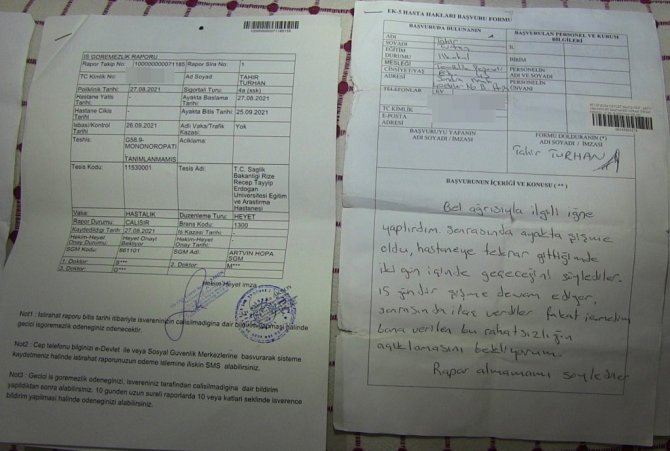 İS GOREMEZLİK RAPORU
Rapor Takip No: Rapor Sira No: 1
TC Kimlik No Ad Soyad: TAHIR TURHAN
Poliklinik Tarihi: 27.08.2021 Sigortali Turu: 4a (ssk)
Hastane Yatis Tarihi: Ayakta Baslama Tarihi: 27.08.2021
Hastane Cikis Tarihi: Ayakta Bitis Tarihi: 25.09.2021
Isbasi/Kontrol Tarihi 26.09.2021 Adli Vaka/Trafik Kazasi: Yok
Teshis: G58.9- MONONOROPATI TANIMLANMAMIS Aciklama:
Tesis Kodu: 11530001 Tesis Adi: T.C. Saglik Bakanligi Rize Recep Tayyip Erdogan Universitesi Egitim ve Arastirma Hastanesi
Vaka: HASTALIK Duzenleme Turu: HEYET
Rapor Durumu: CALISIR Brans Kodu: 1300
Kaydedildigi Tarihi: 27.08.2021 Is Kazasi Tarihi:
Hekim-Heyet Onay Durumu: Heyet Onayi Bekliyor Hekim-Heyet Onay Tarihi:
SGM Kodu: 861101 SGM Adi: ARTVIN HOPA SGM
1. Doktor: 2. Doktor: M***
3. Doktor: G***
Hekim/Heyet imza
Not1 : Istirahat raporu bitis tarihi itibariyle isvereninizin calisilmadigina dair bildirim yapilmasi halinde
gecici isgoremezlik odeneginiz odenecektir.
Not2 : Cep telefonu bilginizi e-Devlet ile veya Sosyal Guvenlik Merkezlerine basvurarak sisteme
kaydetmeniz halinde istirahat raporunuzun odeme islemine iliskin SMS alabilirsiniz.
Not3 : Gecici is goremezlik odeneginizi, isvereniniz tarafindan calisilmadigina dair bildirim
yapildiktan sonra alabilirsiniz. 10 gunden uzun sureli raporlarda 10 veya katlari seklinde isverence
bildirim yapilmasi halinde odeneginizi alabilirsiniz.
EK-5 HASTA HAKLARI BAŞVURU FORMU
BAŞVURUDA BULUNANIN BAŞVURULAN PERSONEL VE KURUM BİLGİLERİ
ADI Tahir
SOYADI Turhan İL
EĞİTİM DURUMU ilkokul BİRİM
MESLEĞİ PERSONELİN
CİNSİYET/YAŞ ADI VE SOYADI
ADRESİ PERSONELİN ÜNVANI
TELEFONLAR EV
TC KİMLİK
E-POSTA
ADRESİ
BAŞVURUYU YAPANIN ADI SOYADI / İMZASI FORMU DOLDURANIN (*) ADI SOYADI / İMZASI
Tahir TURHAN
BAŞVURUNUN İÇERİĞİ VE KONUSU (**)
Bel ağrısıyla ilgili iğne
yaptırdım. sonrasında ayakta şişme
oldu, hastaneye tekrar gittiğimde
iki gün içinde geçeceğini söylediler.
15 gündür şişme devam ediyor,
sonrasında ilaç verdiler fakat içmedim
bana verilen bu rahatsızlığın
açıklamasını bekliyorum
Rapor almamamı söylediler